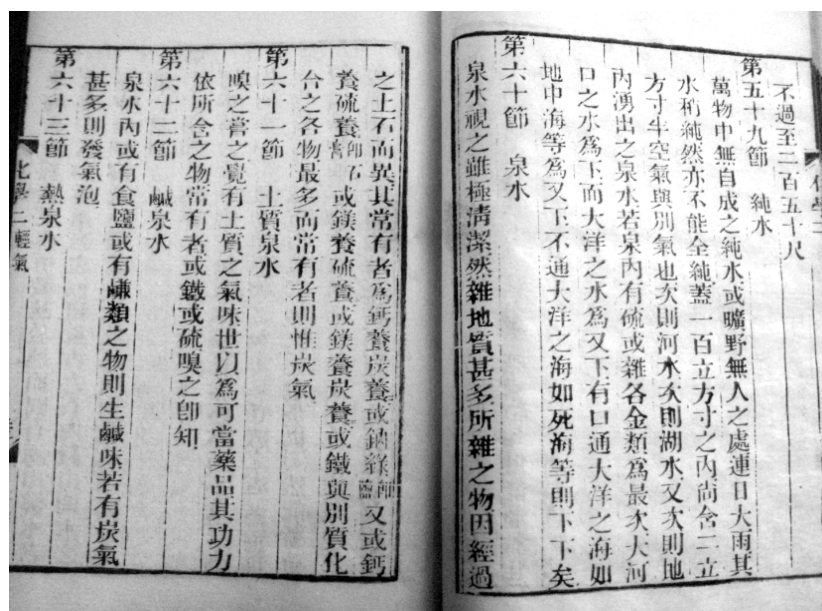 不過至二百五十尺
第五十九節　純水
萬物中無自成之純水或曠野無人之處連日大雨其
水稍純然亦不能全純蓋一百立方寸之內尙含二立
方寸半空氣與別氣也次則河水次則湖水又次則地
內湧出之泉水若泉內有硫或雜各金類爲最次大河
口之水爲下而大洋之水爲又下有口通大洋之海如
地中海等爲又下不通大洋之海如死海等則下下矣
第六十節　泉水
泉水視之雖極清潔然雜地質甚多所雜之物因經過
之土石而異其常有者爲鈣養炭養或鈉綠卽鹽又或鈣
養硫養卽石膏或鎂養硫養或鎂養炭養或鐵與別質化
合之各物最多而常有者則惟炭氣
第六十一節　土質泉水
嗅之嘗之覺有土質之氣味世以爲可當藥品其功力
依所含之物常有者或鐵或硫嗅之卽知
第六十二節　鹹泉水
泉水內或有食鹽或有鹻類之物則生鹹味若有炭氣
甚多則發氣泡
第六十三節　熱泉水
化學二輕氣